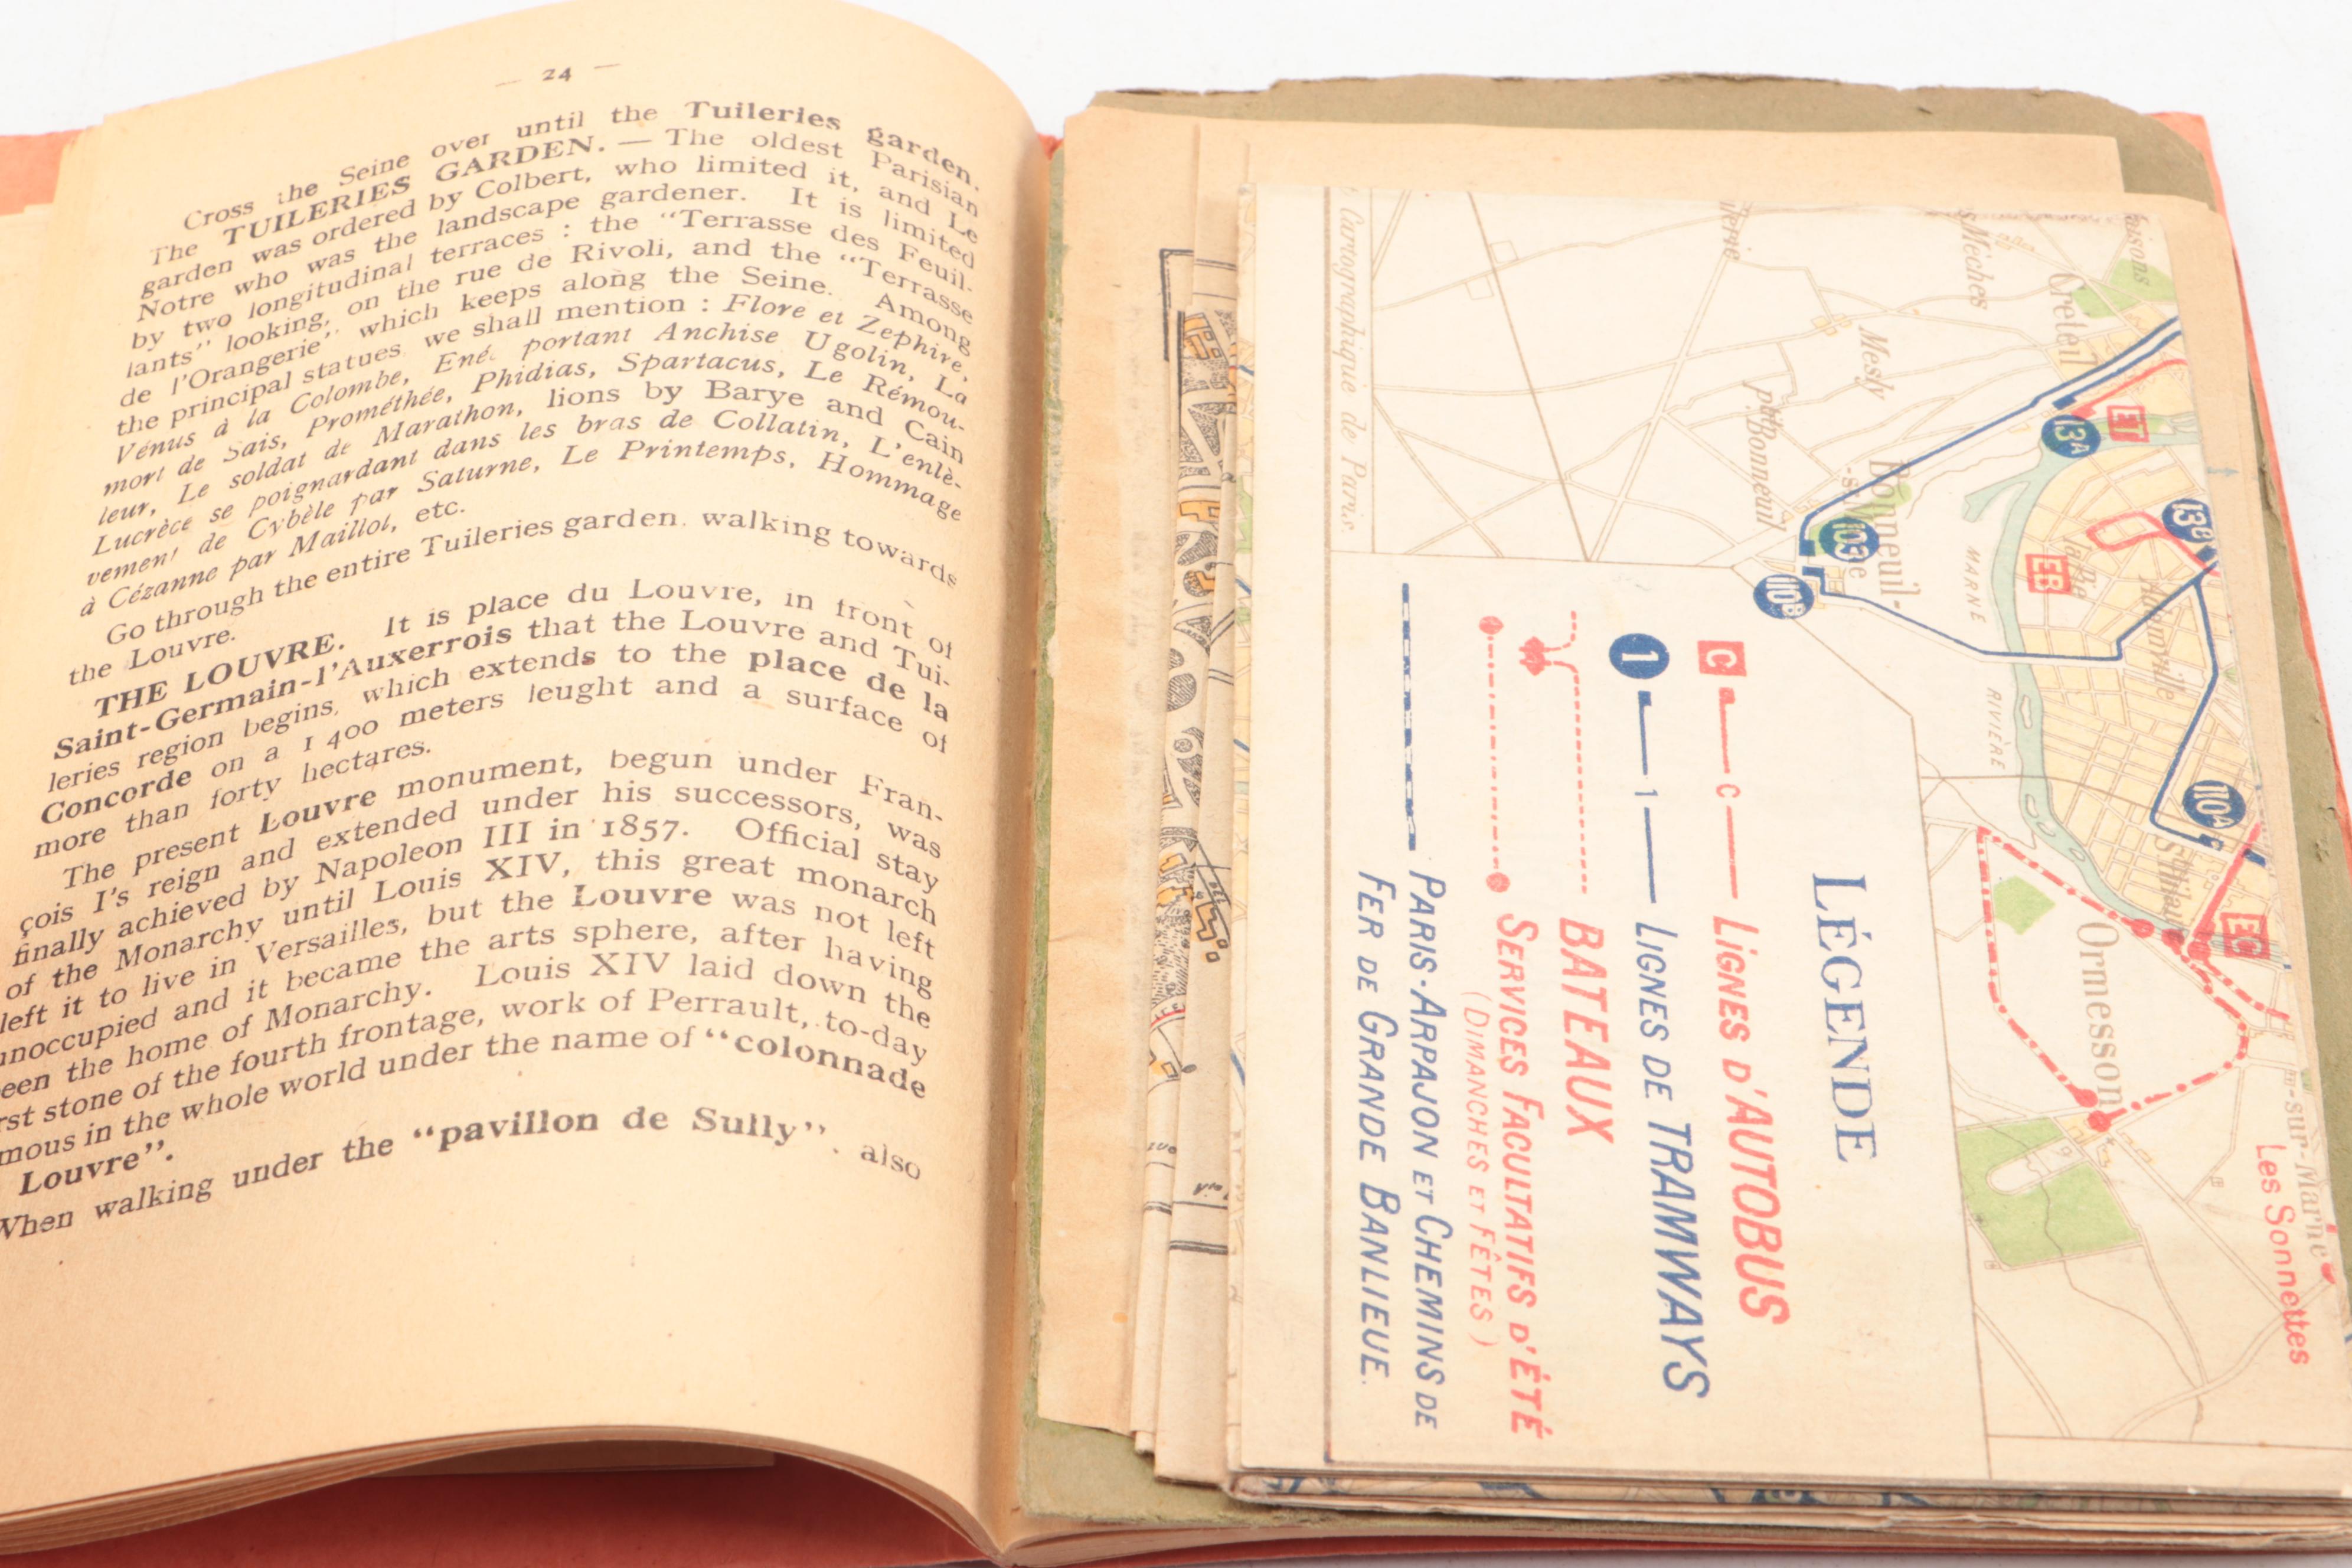 — 24 —
Cross the Seine over until the Tuileries garden.
The TUILERIES GARDEN. — The oldest Parisian
garden was ordered by Colbert, who limited it, and Le
Notre who was the landscape gardener. It is limited
by two longitudinal terraces : the "Terrasse des Feuil-
lants" looking, on the rue de Rivoli, and the "Terrasse
de l'Orangerie", which keeps along the Seine. Among
the principal statues we shall mention : Flore et Zephire,
Vénus à la Colombe, Ené portant Anchise Ugolin, La
mort de Sais, Prométhée, Phidias, Spartacus, Le Rémou-
leur, Le soldat de Marathon, lions by Barye and Cain
Lucrèce se poignardant dans les bras de Collatin, L'enlè-
vement de Cybèle par Saturne, Le Printemps, Hommage
à Cézanne par Maillol, etc.
Go through the entire Tuileries garden. walking towards
the Louvre.
THE LOUVRE. It is place du Louvre, in front of
Saint-Germain-l'Auxerrois that the Louvre and Tui-
leries region begins, which extends to the place de la
Concorde on a 1 400 meters leught and a surface of
more than forty hectares.
The present Louvre monument, begun under Fran-
çois I's reign and extended under his successors, was
finally achieved by Napoleon III in 1857. Official stay
of the Monarchy until Louis XIV, this great monarch
left it to live in Versailles, but the Louvre was not left
unoccupied and it became the arts sphere, after having
been the home of Monarchy. Louis XIV laid down the
rst stone of the fourth frontage, work of Perrault, to-day
mous in the whole world under the name of "colonnade
Louvre".
When walking under the "pavillon de Sully". also
Cartographique de Paris.
Mèches
Créteil
Mesly
pt Bonneuil
Bonneuil-
13A
ET
103
110B
13B
EB
MARNE
RIVIÈRE
110A
EC
Ormesson
-sur-Marne
Les Sonnettes
LÉGENDE
C C LIGNES D'AUTOBUS
1 1 LIGNES DE TRAMWAYS
BATEAUX
SERVICES FACULTATIFS D'ÉTÉ
(DIMANCHES ET FÊTES)
PARIS-ARPAJON ET CHEMINS DE
FER DE GRANDE BANLIEUE.